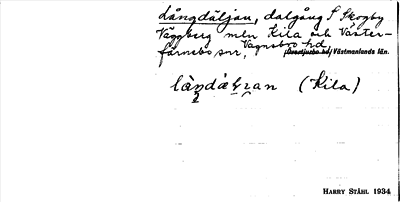 Långdäljan, dalgång S Skogby
Väggberg mln Kila och Väster-
färnebo snr, Vagnsbro hd, Västmanlands län.
(Kila)
HARRY STÅHL 1934